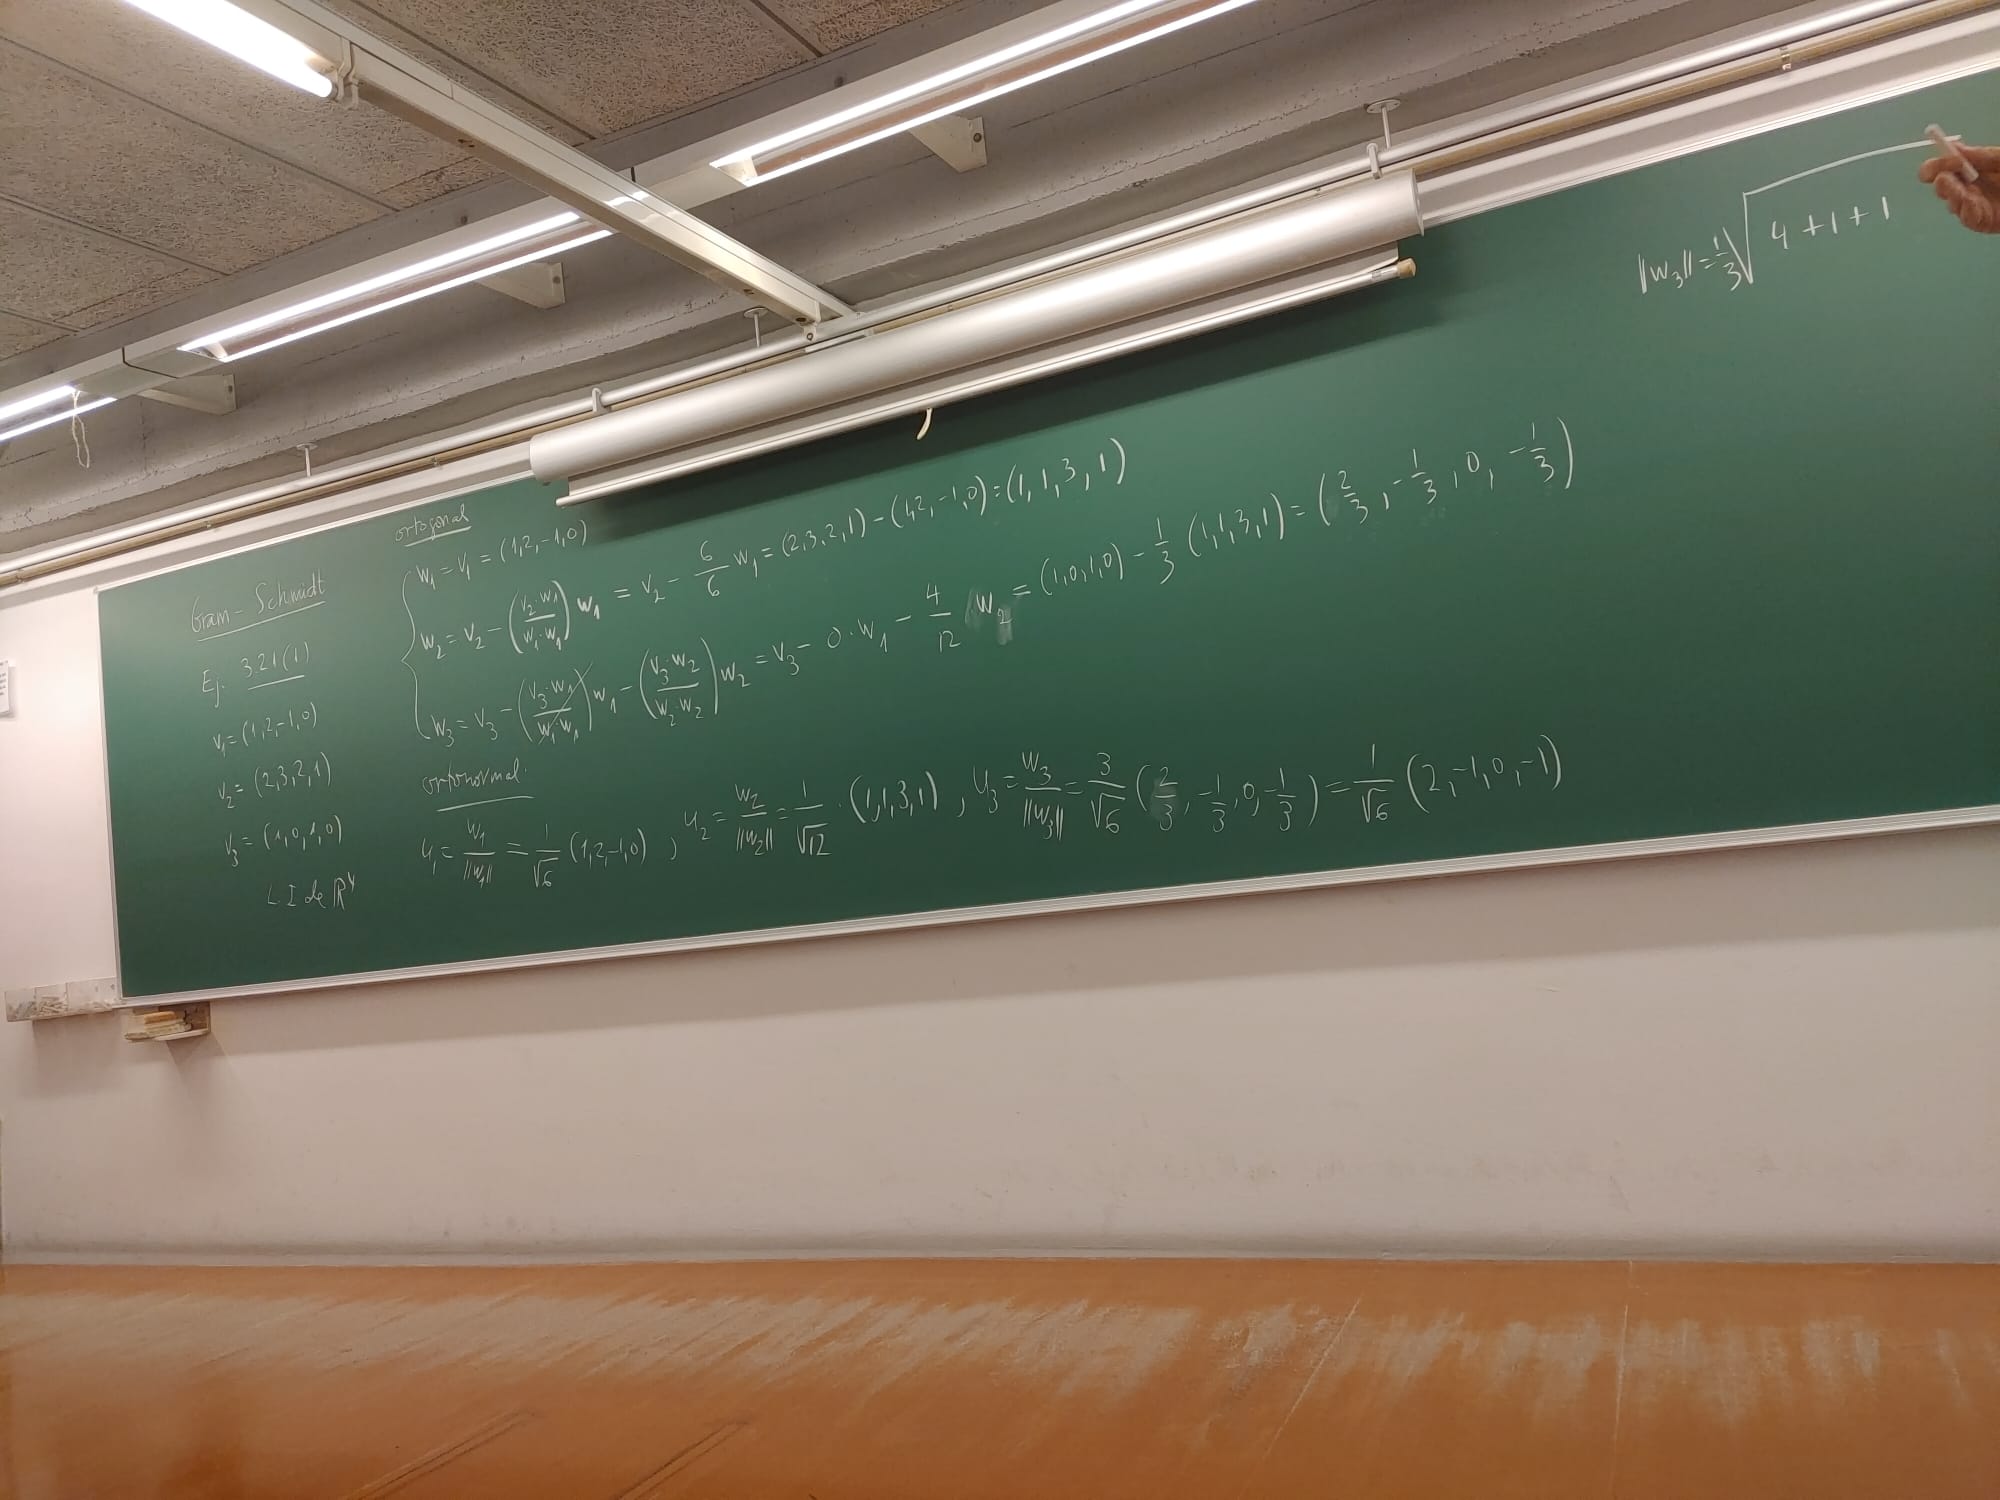 Gram-Schmidt
Ej. 3.21(1)
v₁=(1,2,-1,0)
v₂=(2,3,2,1)
v₃=(1,0,1,0)
L.I de ℝ⁴
ortogonal
w₁=v₁=(1,2,-1,0)
w₂=v₂-(v₂·w₁/w₁·w₁)w₁=v₂-6/6 w₁=(2,3,2,1)-(1,2,-1,0)=(1,1,3,1)
w₃=v₃-(v₃·w₁/w₁·w₁)w₁-(v₃·w₂/w₂·w₂)w₂=v₃-0·w₁-4/12 w₂=(1,0,1,0)-1/3(1,1,3,1)=(2/3,-1/3,0,-1/3)
ortonormal.
u₁=w₁/||w₁||=1/√6(1,2,-1,0), u₂=w₂/||w₂||=1/√12·(1,1,3,1), u₃=w₃/||w₃||=3/√6(2/3,-1/3,0,-1/3)=1/√6(2,-1,0,-1)
||w₃||=1/3√4+1+1